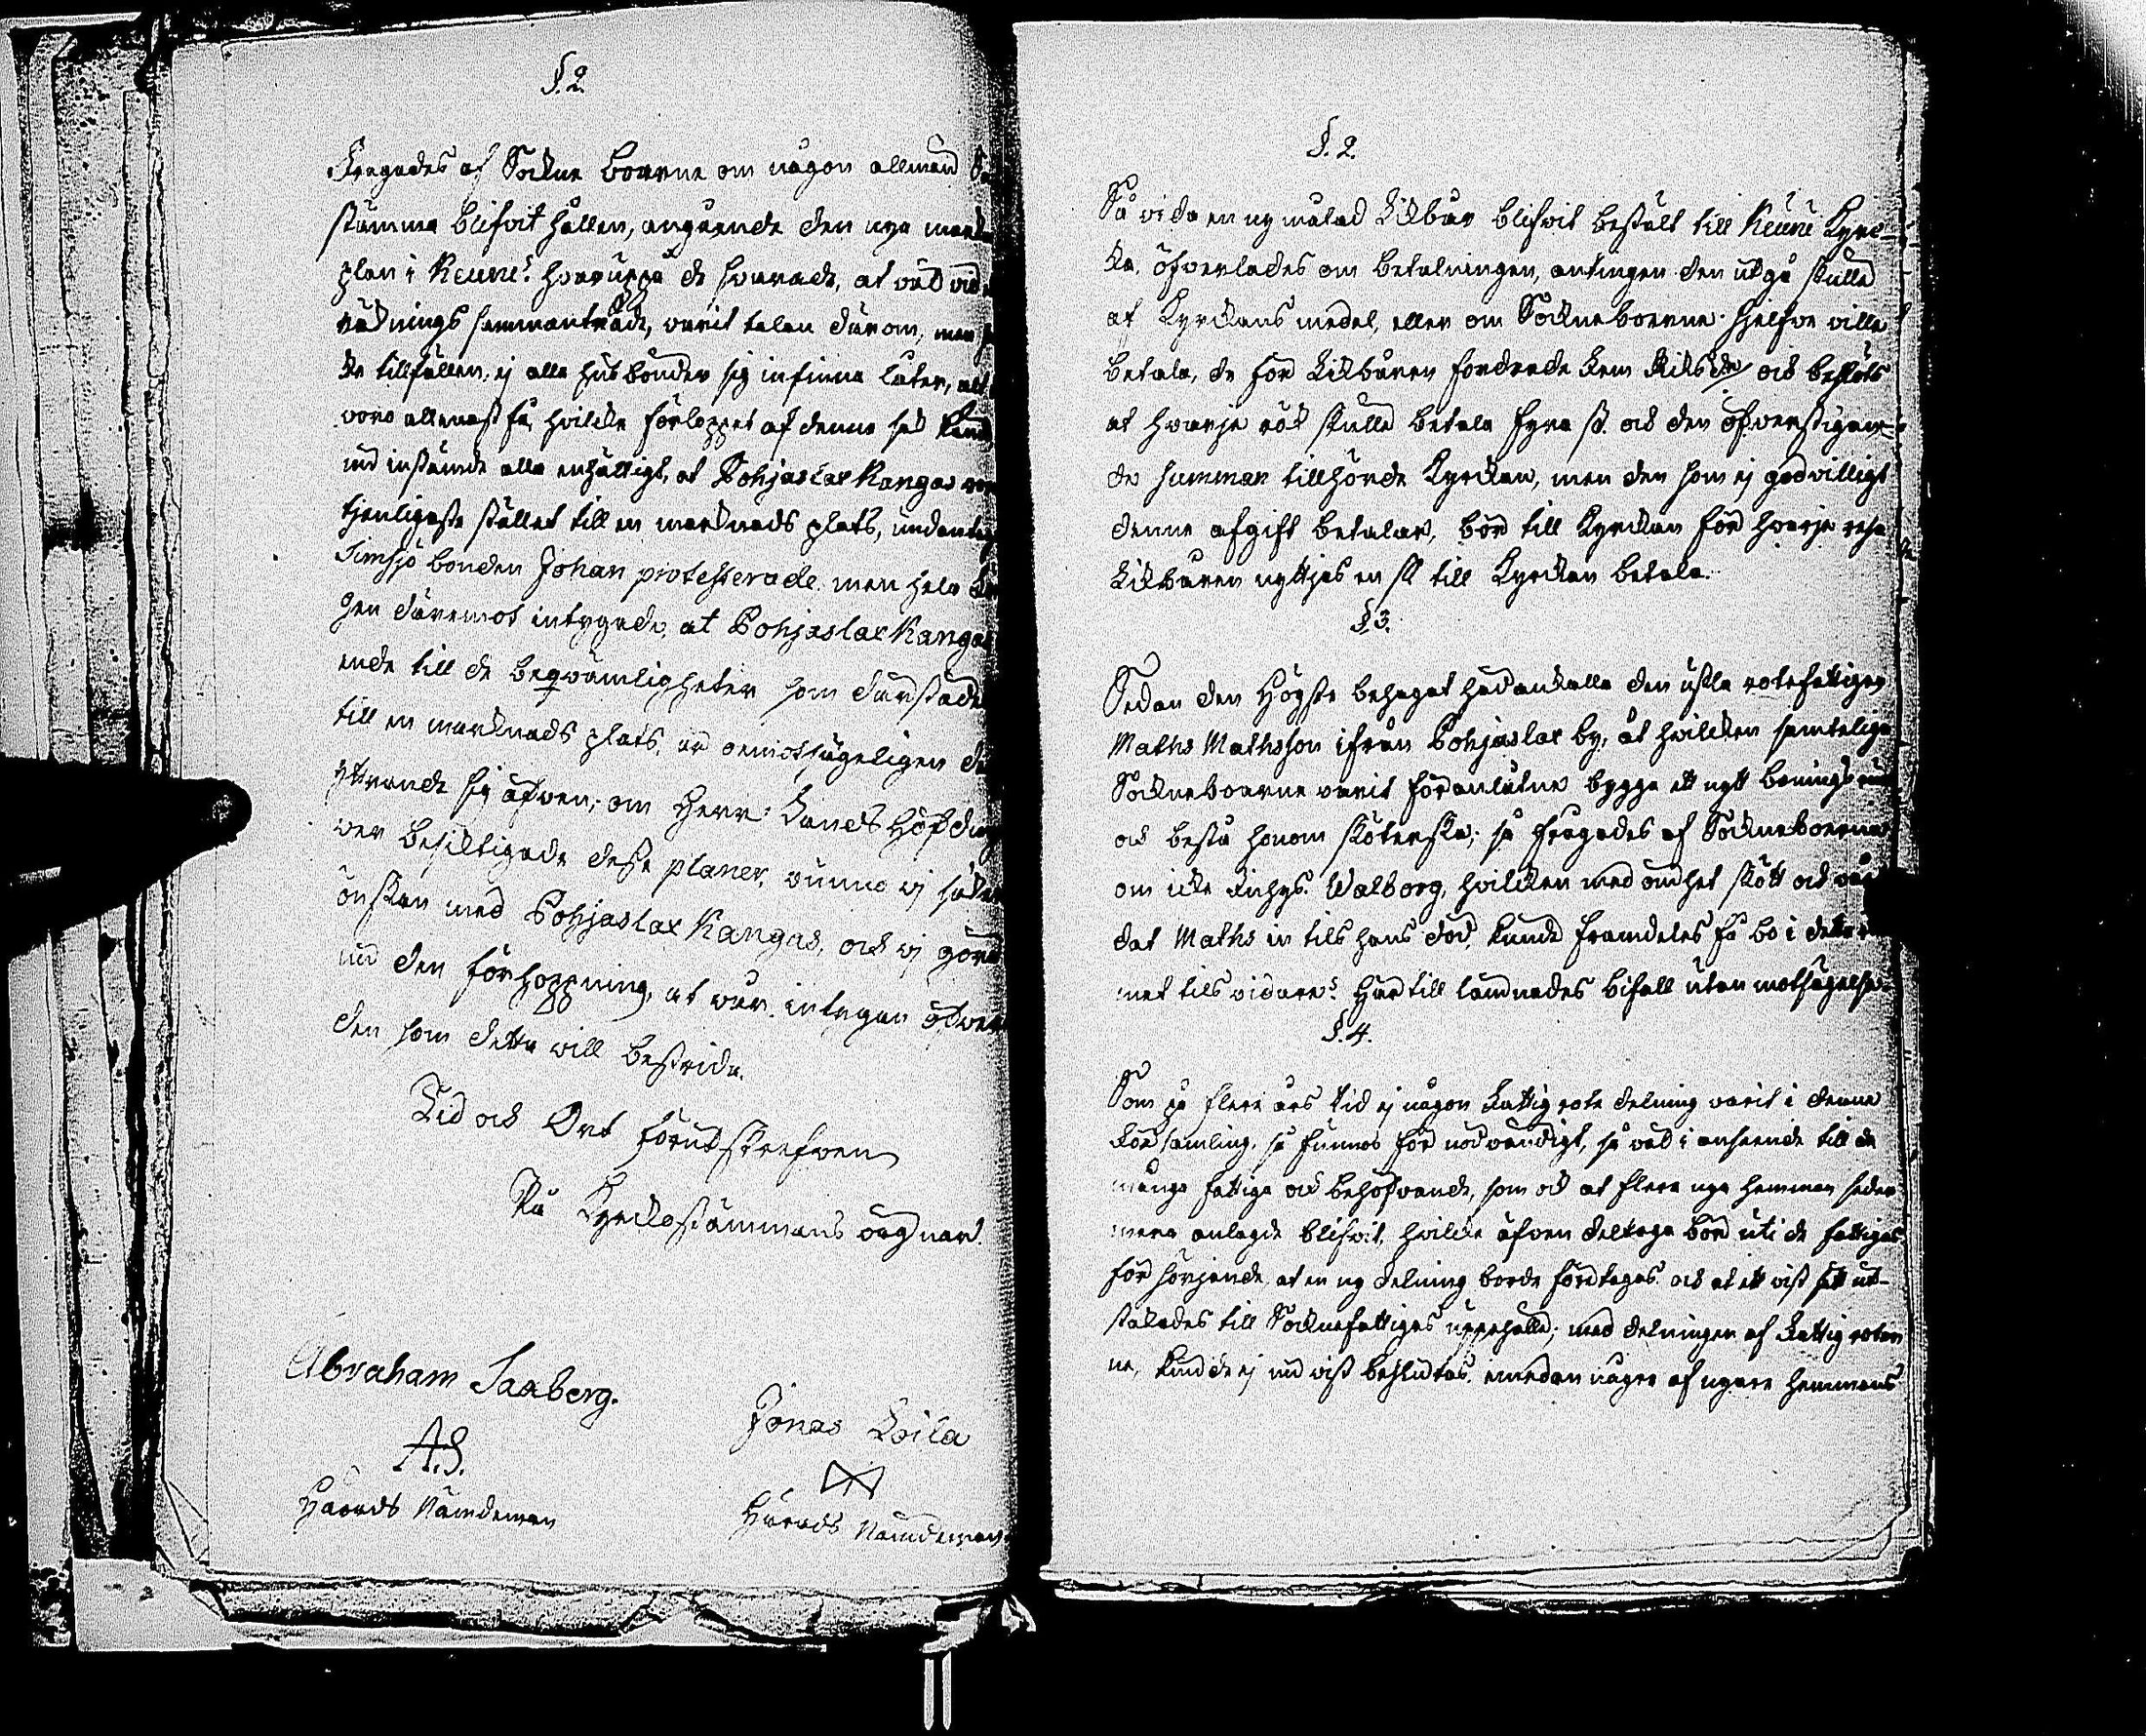 §. 2.
Frågades af Sockne boerne om någon allmän
stämma blifvit hållen, angående den nya
plan i Keune? hvaruppå de svarade, at väl vid
räknings sammanträde, varit talan därom, men
de tillfällen, ej alla husbönder sig infinna låter,
voro allenast få, hvilcke förloppet af denne sak
nu instämde alla enhälligt, at Pohjaslax Kangas
tjenligaste stället till en marknads plats, undantag
Simsjö bonden Johan protesterade. men hela
gen däremot intygade, at Pohjaslax Kangas
ende till de beqvämligheter som därstädes
till en marknads plats, är oemotsägeligen
yttrande sig äfven, om Herr Lands Höfding
ver besiktigade desse planer, vunno vi
önskan med Pohjaslax Kangas, och vi göra
nu den förhoppning, at vår intygan öfver
den som detta vill bestrida.
Tid och Ort förutskrefven
På Kyrckostämmans vägnar.
Abraham Saxberg.
A.S.
Härads Nämdeman
Jonas Loila
Härads Nämdeman
§. 2.
Så vida en ny målad Likbår blifvit bestält till Keune Kyrc-
ka, öfverlades om betalningen, antingen den utgå skulle
af Kyrckans medel, eller om Sockneboerne sjelfve ville
betala, de för Likbåren fordrade fem Riksdr och beslöts
at hvarje rök skulle betala fyra sk. och den öfverstigan-
de summan tillhörde Kyrckan, men den som ej godvilligt
denne afgift betalar, bör till Kyrckan för hvarje resa
Likbåren nyttjas en sk till Kyrckan betala.
§. 3.
Sedan den Högste behagat hädankalla den usla rotefattigen
Maths Mathsson ifrån Pohjaslax by, åt hvilcken samtelige
Sockneboerne varit föranlåtne bygga ett nytt bonings
och bestå honom sköterska; så frågades af Sockneboerne
om icke Enkgs. Walborg, hvilcken med ömhet skött och
dat Maths in tils hans död, kunde framdeles få bo i detta
met tils vidare? Härtill lämnades bifall utan motsägelse.
§. 4.
Som på flere års tid ej någon Fattig rote delning varit i denne
Församling, så funnos för nödvändigt, så väl i anseende till de
många fattige och behöfvande, som och at flere nye hemman seder
mera anlagde blifvit, hvilcke äfven deltaga bör uti de fattigas
försörjande, at en ny delning borde företagas och at ett vist sätt ut-
stakades till Socknefattigas uppehälle; med delningen af Fattig roten
ne, kunde ej nu vist beslutas, emedan några af nyare hemmans